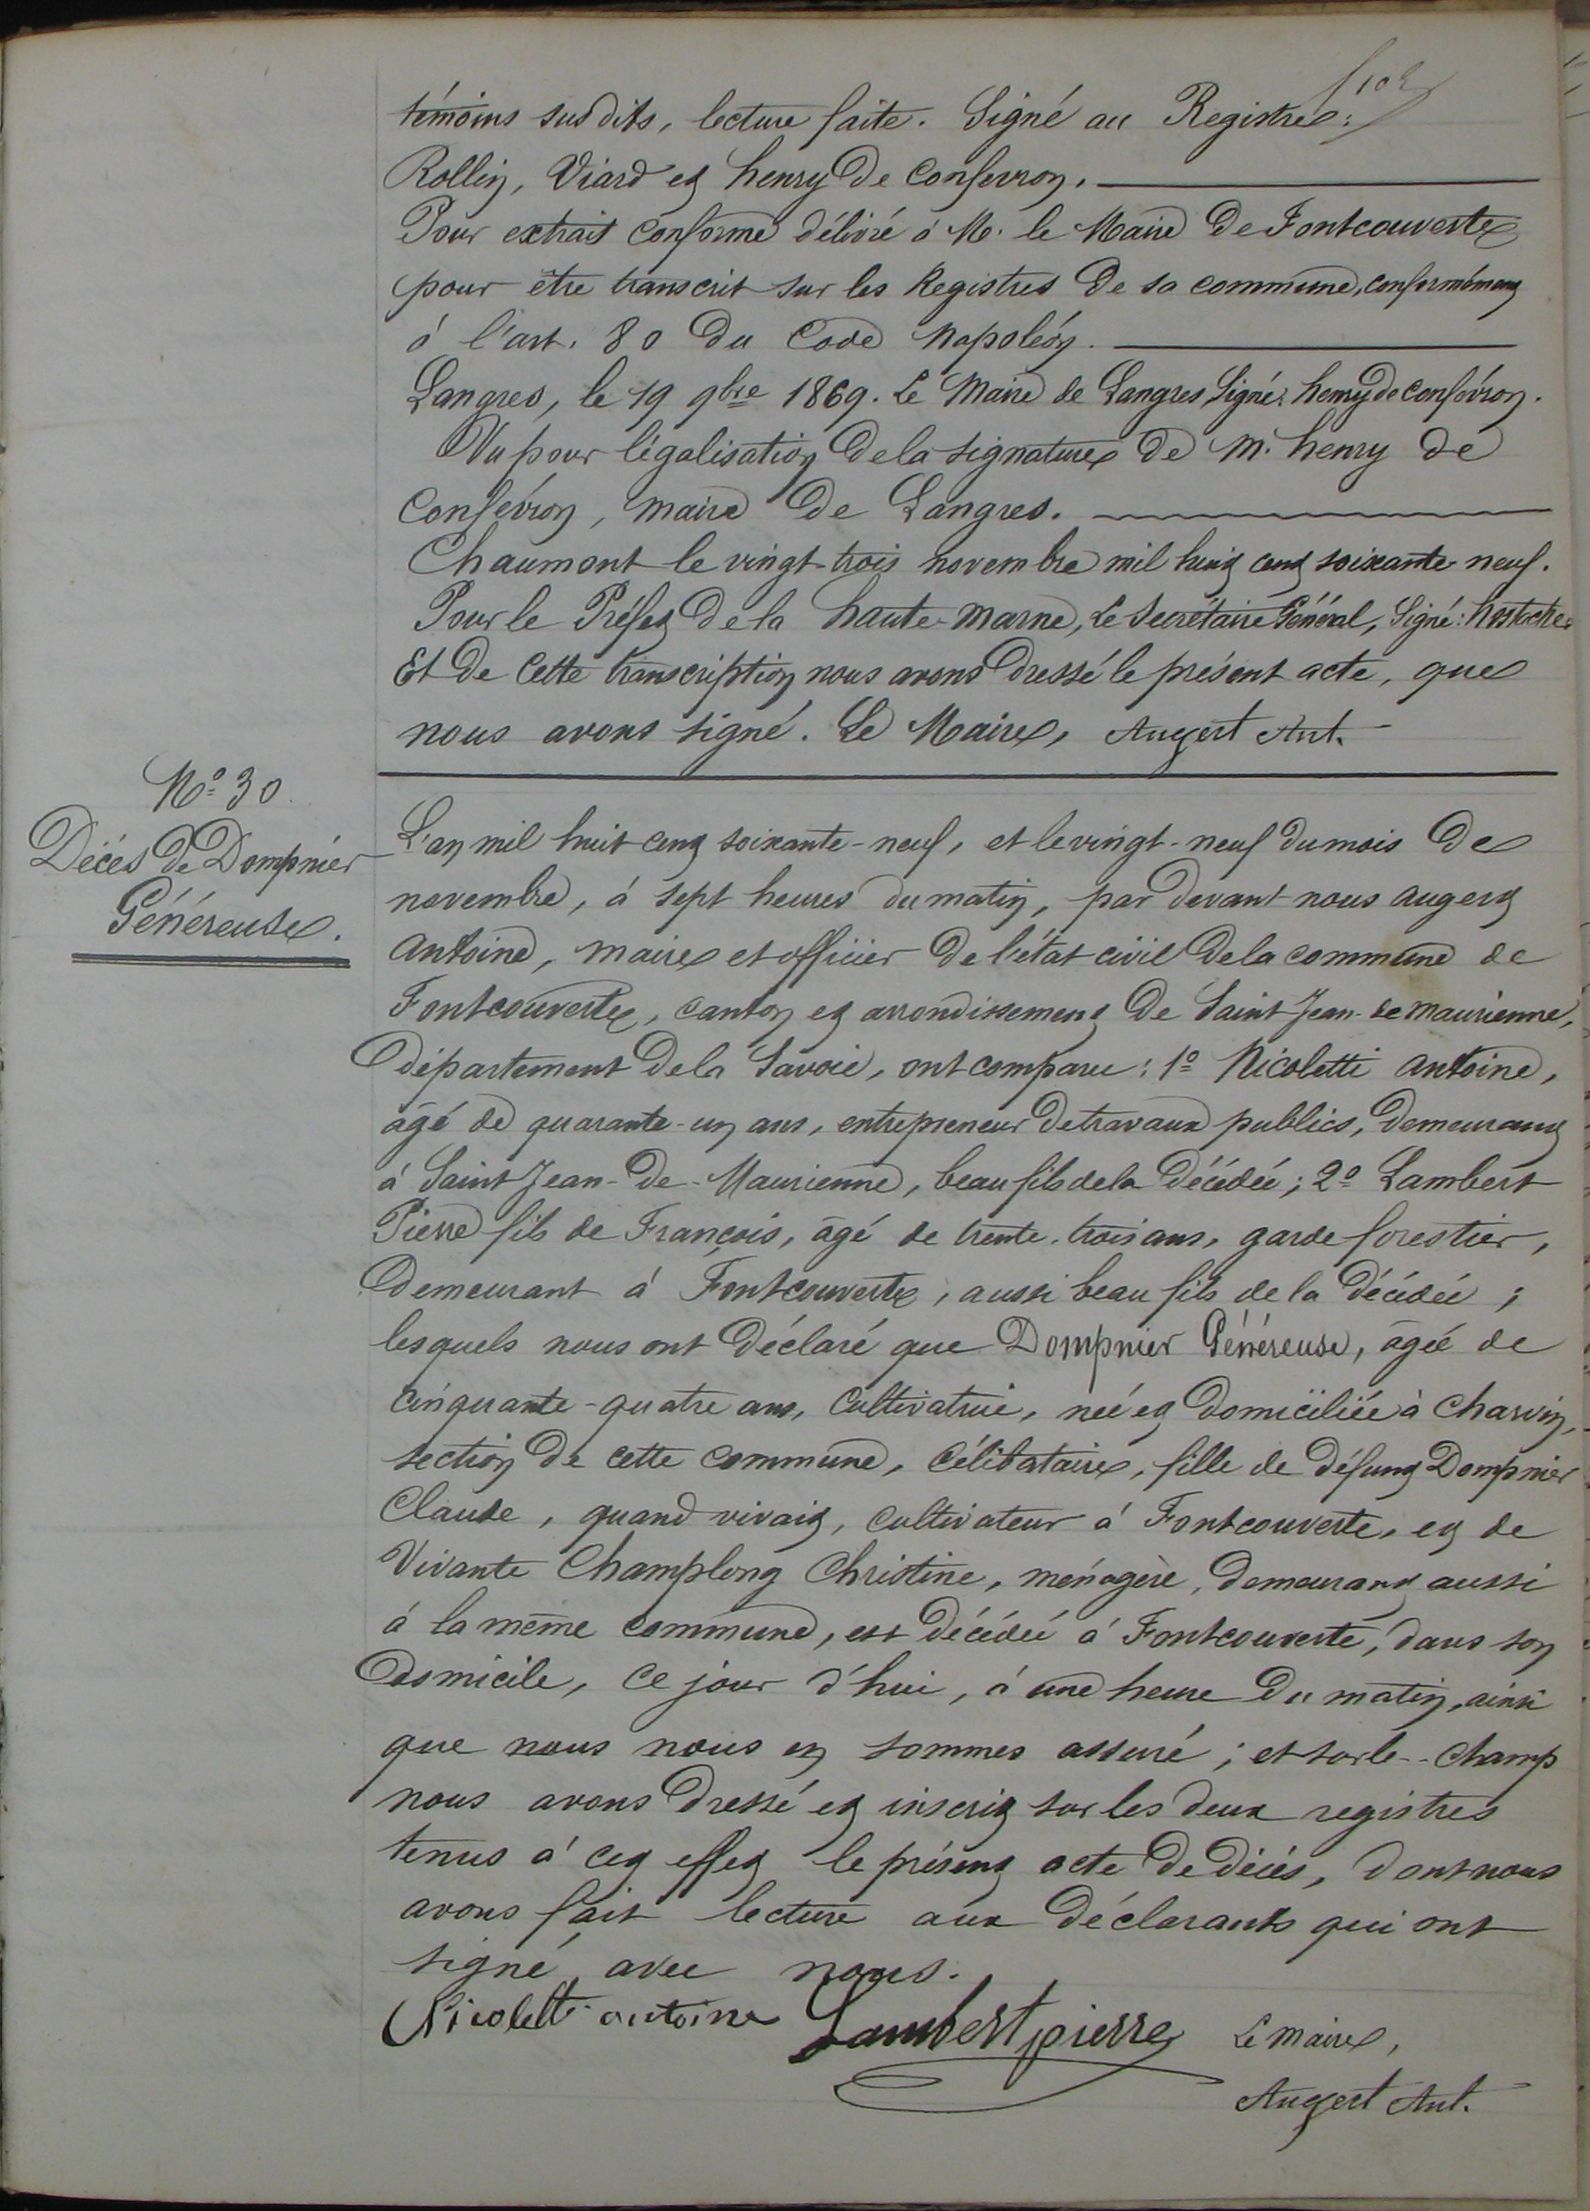 témoins susdits, lecture faite. Signé au Registre:
Rollin, Viard et henry De Confevron.
Pour extrait conforme délivré à M. le Maire De Fontcouverte
pour être transcrit sur les Registres De sa commune, conformément
à l'art. 80 Du Code Napoléon.
Langres, le 19 9bre 1869. Le Maire de Langres, Signé: henry de confévron.
Vu pour légalisation De la signature De M. henry de
Confévron, Maire De Langres.
Chaumont le vingt-trois novembre mil huit cent soixante-neuf.
Pour le Préfet De la haute-Marne, Le Secrétaire Général, Signé:
Et De Cette transcription nous avons Dressé le présent acte, que
nous avons signé. Le Maire, Augert Ant.
No. 30
Décès De Dompnier
Généreuse.
L'an mil huit cent soixante-neuf, et le vingt-neuf du mois De
novembre, à sept heures du matin, par Devant nous Augert
Antoine, maire et officier De l'état civil De la commune de
Fontcouverte, canton et arrondissement De Saint Jean-de maurienne,
Département De la Savoie, ont comparu: 1o Nicoletti Antoine,
âgé de quarante-un ans, entrepreneur De travaux publics, Demeurant
à Saint Jean-De-Maurienne, beau fils de la Décédée; 2o Lambert
Pierre fils de François, âgé de trente-trois ans, garde forestier,
Demeurant à Fontcouverte, aussi beau fils de la Décédée;
lesquels nous ont Déclaré que Dompnier Généreuse, âgée de
cinquante-quatre ans, Cultivatrice, née et Domiciliée à Charvin,
section De cette commune, Célibataire, fille de Défunt Dompnier
Claude, quand vivait, Cultivateur à Fontcouverte, et de
Vivante Champlong Christine, ménagère, Demeurant aussi
à la même commune, est Décédée à Fontcouverte, dans son
Domicile, Ce jour d'hui, à une heure Du matin, ainsi
que nous nous en sommes assuré; et sur le-champ
nous avons Dressé et inscrit sur les deux registres
tenus à cet effet le présent acte De Décès, Dont nous
avons fait lecture aux Déclarants qui ont
signé avec nous.
Nicoletti antoine Lambert pierre Le Maire,
Augert Ant.